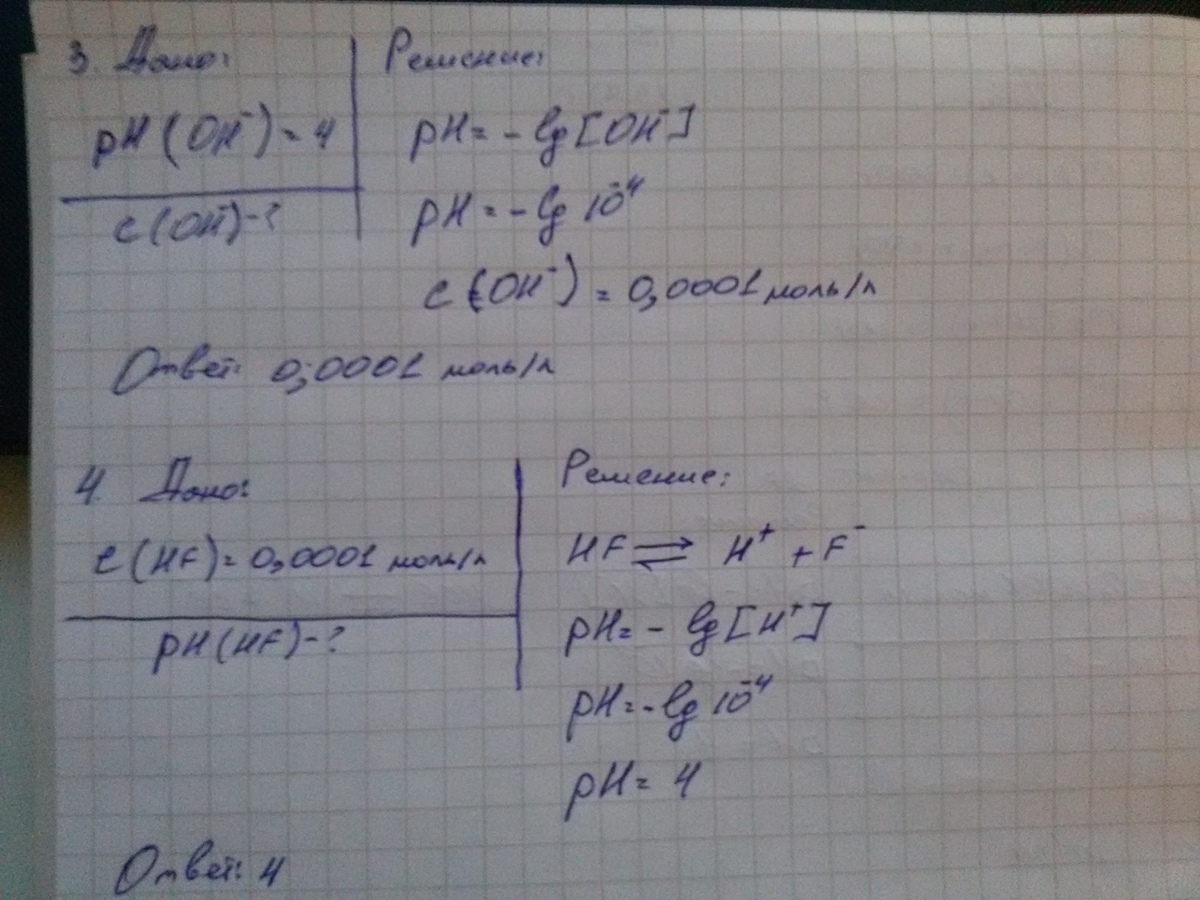 3. Дано:
pH(OH⁻) = 4
c(OH⁻) - ?
Решение:
pH = - lg [OH⁻]
pH = - lg 10⁻⁴
c(OH⁻) = 0,0001 моль/л
Ответ: 0,0001 моль/л
4. Дано:
c(HF) = 0,0001 моль/л
pH(HF) - ?
Решение:
HF ⇌ H⁺ + F⁻
pH = - lg [H⁺]
pH = - lg 10⁻⁴
pH = 4
Ответ: 4